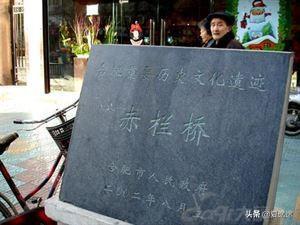 合肥重要历史文化遗迹
赤栏桥
合肥市人民政府
二〇〇二年八月
头条